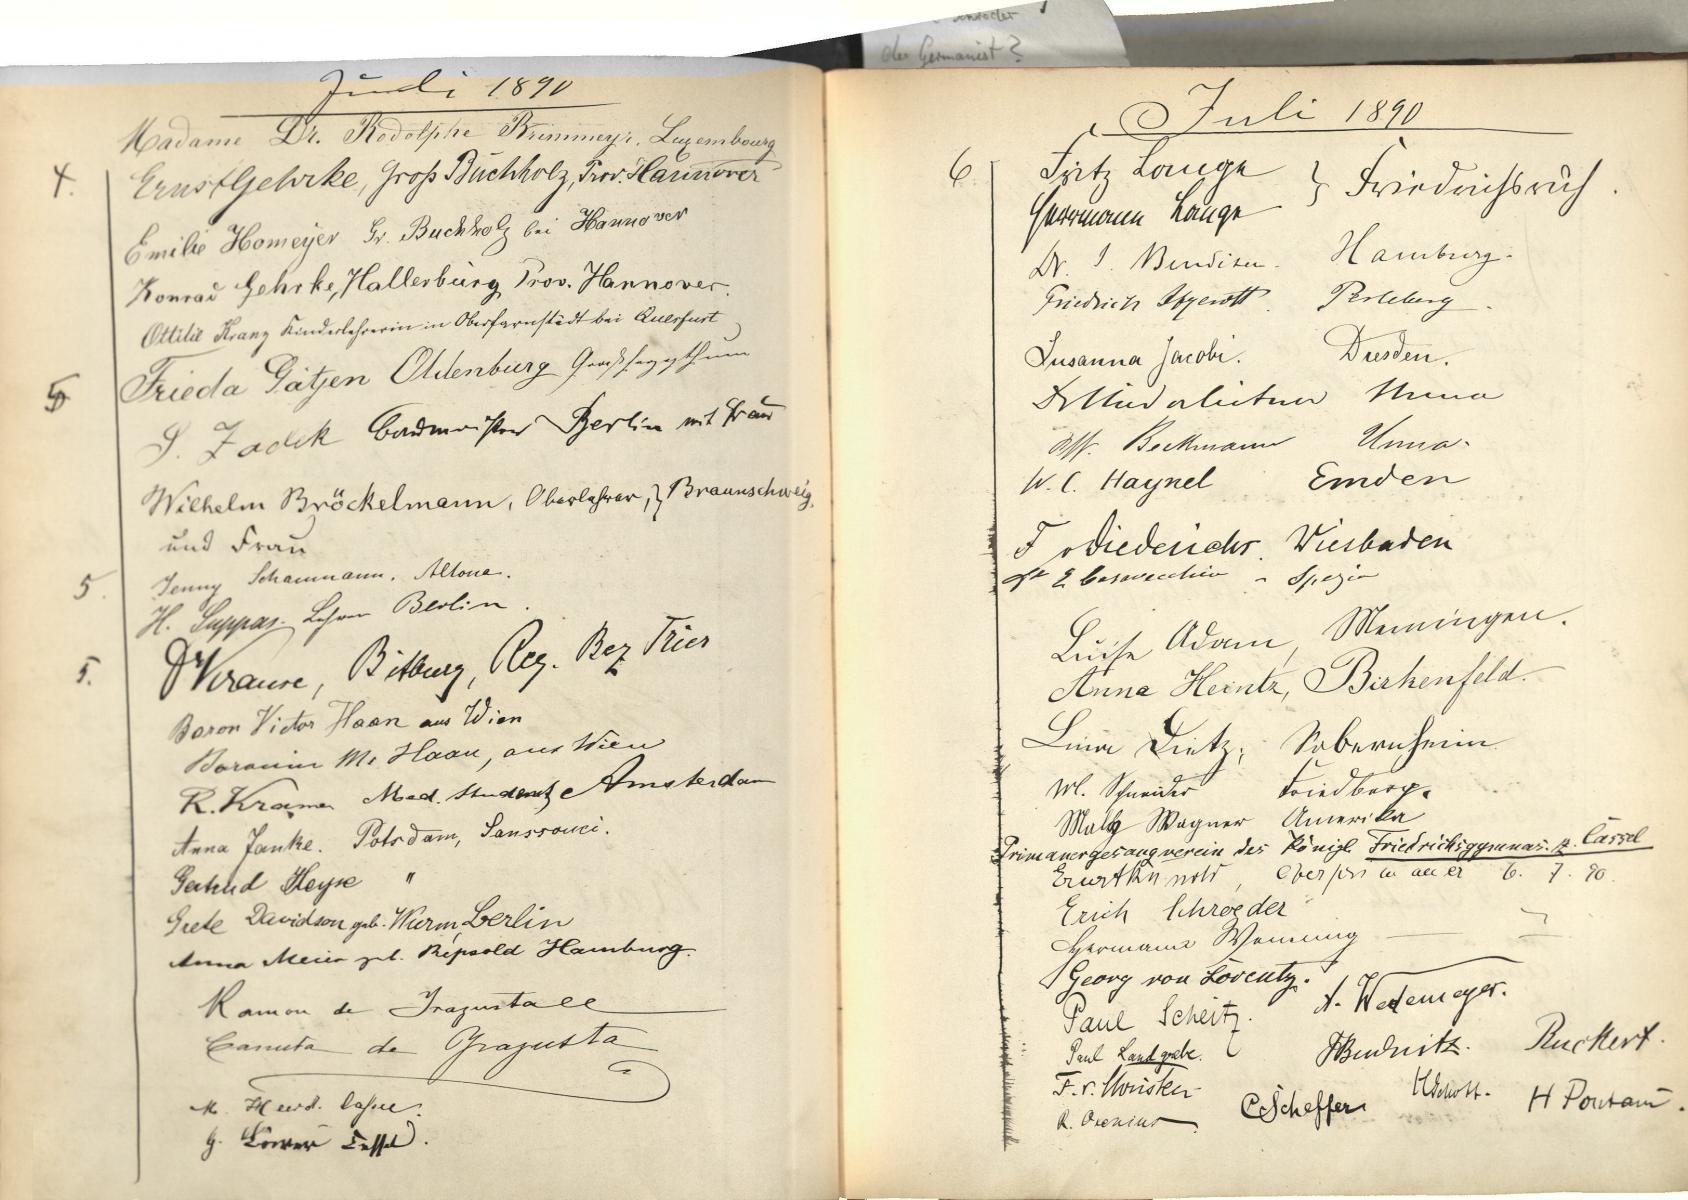 Schröder
der Germanist?
Juli 1890
Madame Dr. Rodolphe Brimmeyr, Luxembourg
4. Ernst Gehrke, Groß Buchholz, Prov. Hannover
Emilie Homeyer Gr. Buchholz bei Hannover
Konrad Gehrke, Hallerburg Prov. Hannover.
Ottilie Kranz Kinderlehrerin in Oberfarnstädt bei Querfurt
5 Frieda Gätjen Oldenburg
S. Zadek Berlin mit Frau
Wilhelm Bröckelmann, Oberlehrer, } Braunschweig.
und Frau
5. Jenny Schaumann. Altona.
H. Suppas. Lehrer Berlin.
5. Dr Krause, Bitburg, Reg. Bez Trier
Baron Victor Haan aus Wien
Baronin M. Haan, aus Wien
R. Kramer Med. Student, Amsterdam
Anna Janke. Potsdam, Sanssouci.
Gertrud Heyse "
Grete Davidson geb. Wurm, Berlin
Anna Meier geb. Repsold Hamburg.
Ramon de
de
M.
G. Cassel.
Juli 1890
6 Fritz Lange } Friedrichsruh.
Herrmann Lange
Dr. J. Hamburg.
Friedrich Perleberg.
Susanna Jacobi. Dresden.
Unna
Beckmann Unna.
W. C. Haynel Emden
F v Diederichs. Wiesbaden
E Casavecchia - Spezia
Luise Adam, Memingen.
Anna Heintz, Birkenfeld.
Lina Dietz, Sobernheim
W. Schneider Friedberg.
Wagner Amerika
Primanergesangverein des Königl Friedrichsgymnas. z. Cassel
Ernst Kunold, Oberprimaner 6. 7. 90.
Erich Schroeder "
Hermann Wenning
Georg von Loventz.
Paul Scheitz. A. Wedemeyer.
Paul Landgrebe. Ruckert.
F. v.
R. C Scheffer H Schott. H Pontani.